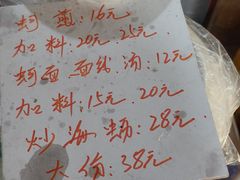 蚵煎:16元
加料:20元.25元
蚵面 面线.汤:12元
加料:15元.20元
炒海蛎:28元
大份:38元